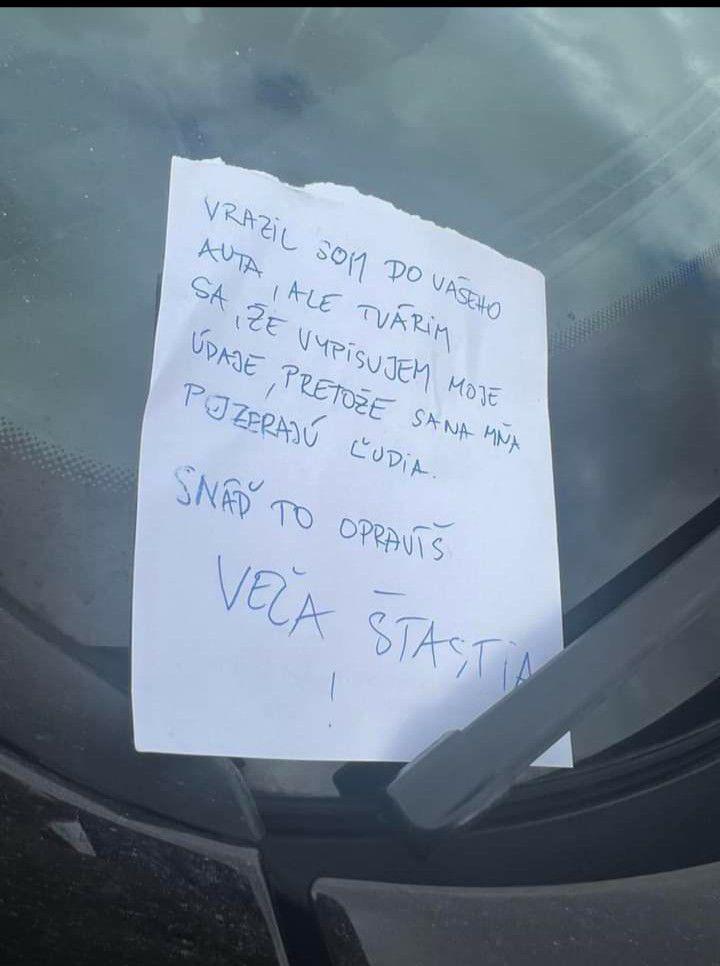 VRAZIL SOM DO VAŠEHO
AUTA, ALE TVÁRIM
SA, ŽE VYPISUJEM MOJE
ÚDAJE, PRETOŽE SA NA MŇA
POZERAJÚ ĽUDIA.
SNÁĎ TO OPRAVÍŠ
VEĽA ŠTASTIA
!